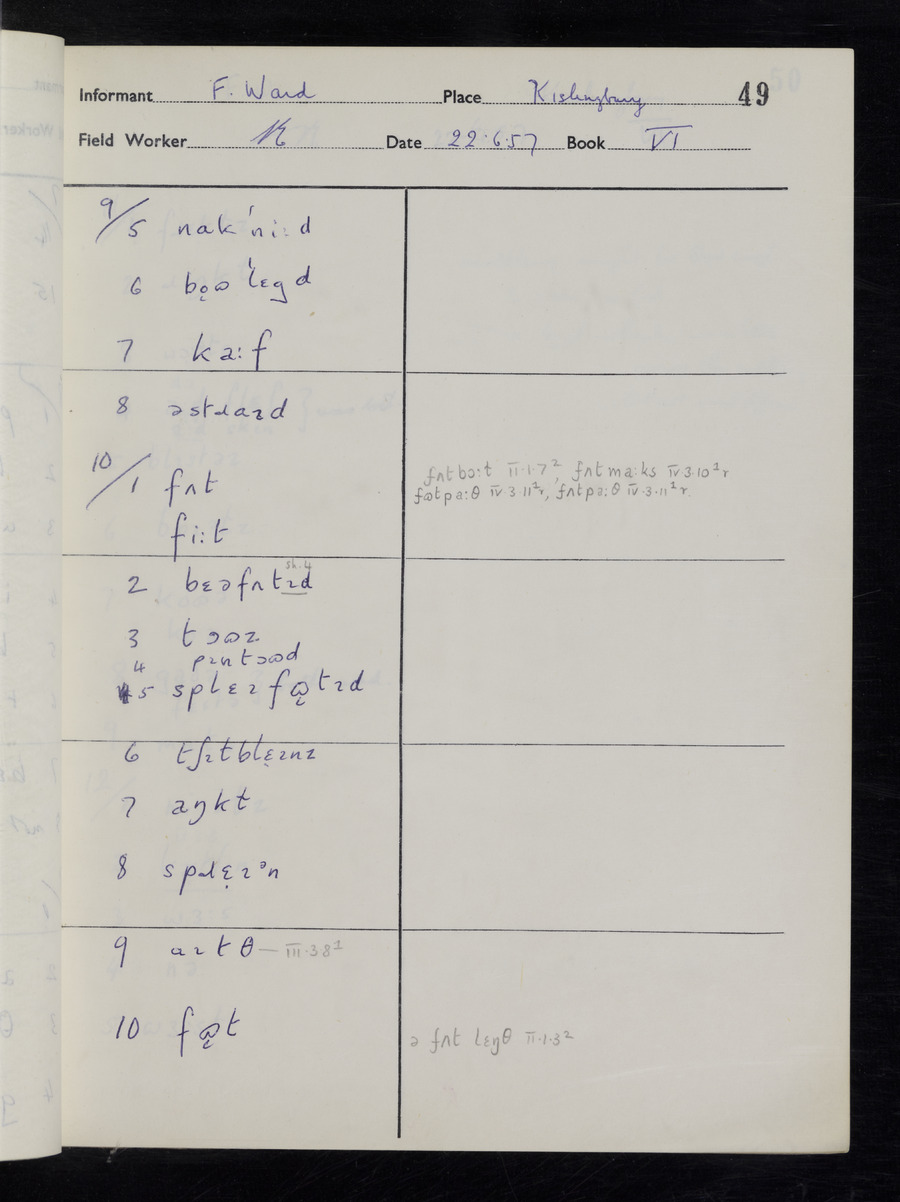 Informant F. Ward Place Kislingbury 49
Field Worker Date 22.6.57 Book VI
9/5 nakˈniːd
6 bo̞ɷˈlɛgd
7 kaːf
8 əstɹaɪd
10/1 fʌt
fʌtbɔːt II.1.7², fʌtmaːks IV.3.10¹r
fɷtpaːθ IV.3.11²r, fʌtpaːθ IV.3.11²r.
fiːt
sh.4
2 bɛəfʌtɪd
3 tɔɷz
4 pɪntɔɷd
5 splɛɪfɷ̞tɪd
6 tʃɪtblɛ̞ɪnz
7 aŋkɫ
8 spɹɛ̞ɪᵊn
9 aɪtθ — III.3.8¹
10 fɷ̞t
ə fʌt lɛŋθ II.1.3²